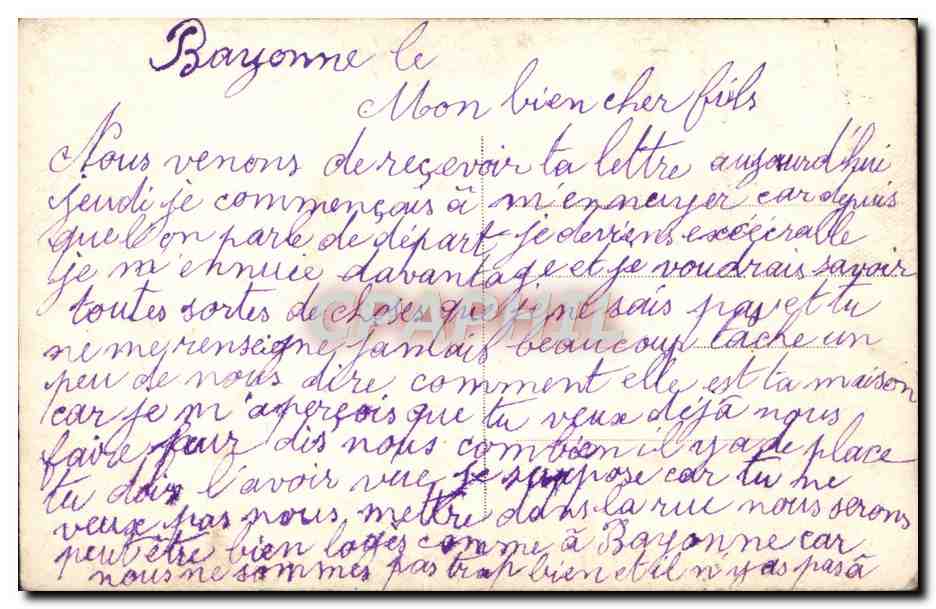 Bayonne le
Mon bien cher fils
Nous venons de reçevoir ta lettre aujourd'hui
jeudi je commençais à m'ennuyer car depuis
que l'on parle de départ je deviens
je m'ennuie davantage et je voudrais savoir
toutes sortes de choses que je ne sais pas et tu
ne me renseigne jamais beaucoup tâche un
peu de nous dire comment elle est ta maison
car je m'aperçois que tu veux déjà nous
faire peur dis nous combien il y a de place
tu dois l'avoir vue je suppose car tu ne
veux pas nous mettre dans la rue nous serons
peut être bien logés comme à Bayonne car
nous ne sommes pas trop bien et il n'y as pas à
CPAPHIL